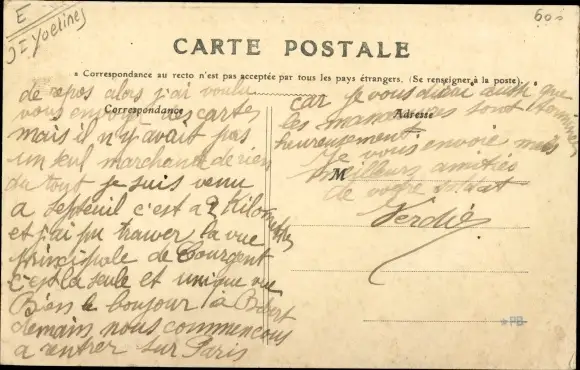 E
Yvelines
600
CARTE POSTALE
Correspondance au recto n'est pas acceptée par tous les pays étrangers. (Se renseigner à la poste).
Correspondance
Adresse
M
de repos alors j'ai voulu
vous envoyer des cartes
mais il n'y avait pas
un seul marchand de rien
du tout je suis venu
a Septeuil c'est a 2 Kilometres
et j'ai pu trouver la vue
principale de Courgent
c'est la seule et unique vue
Bien le bonjour à
demain nous commencons
a rentrer sur Paris
car je vous dirai aussi que
les manoeuvres sont terminées
heureusement
Je vous envoie mes
meilleurs amitiés
de votre soldat
Verdié
PB